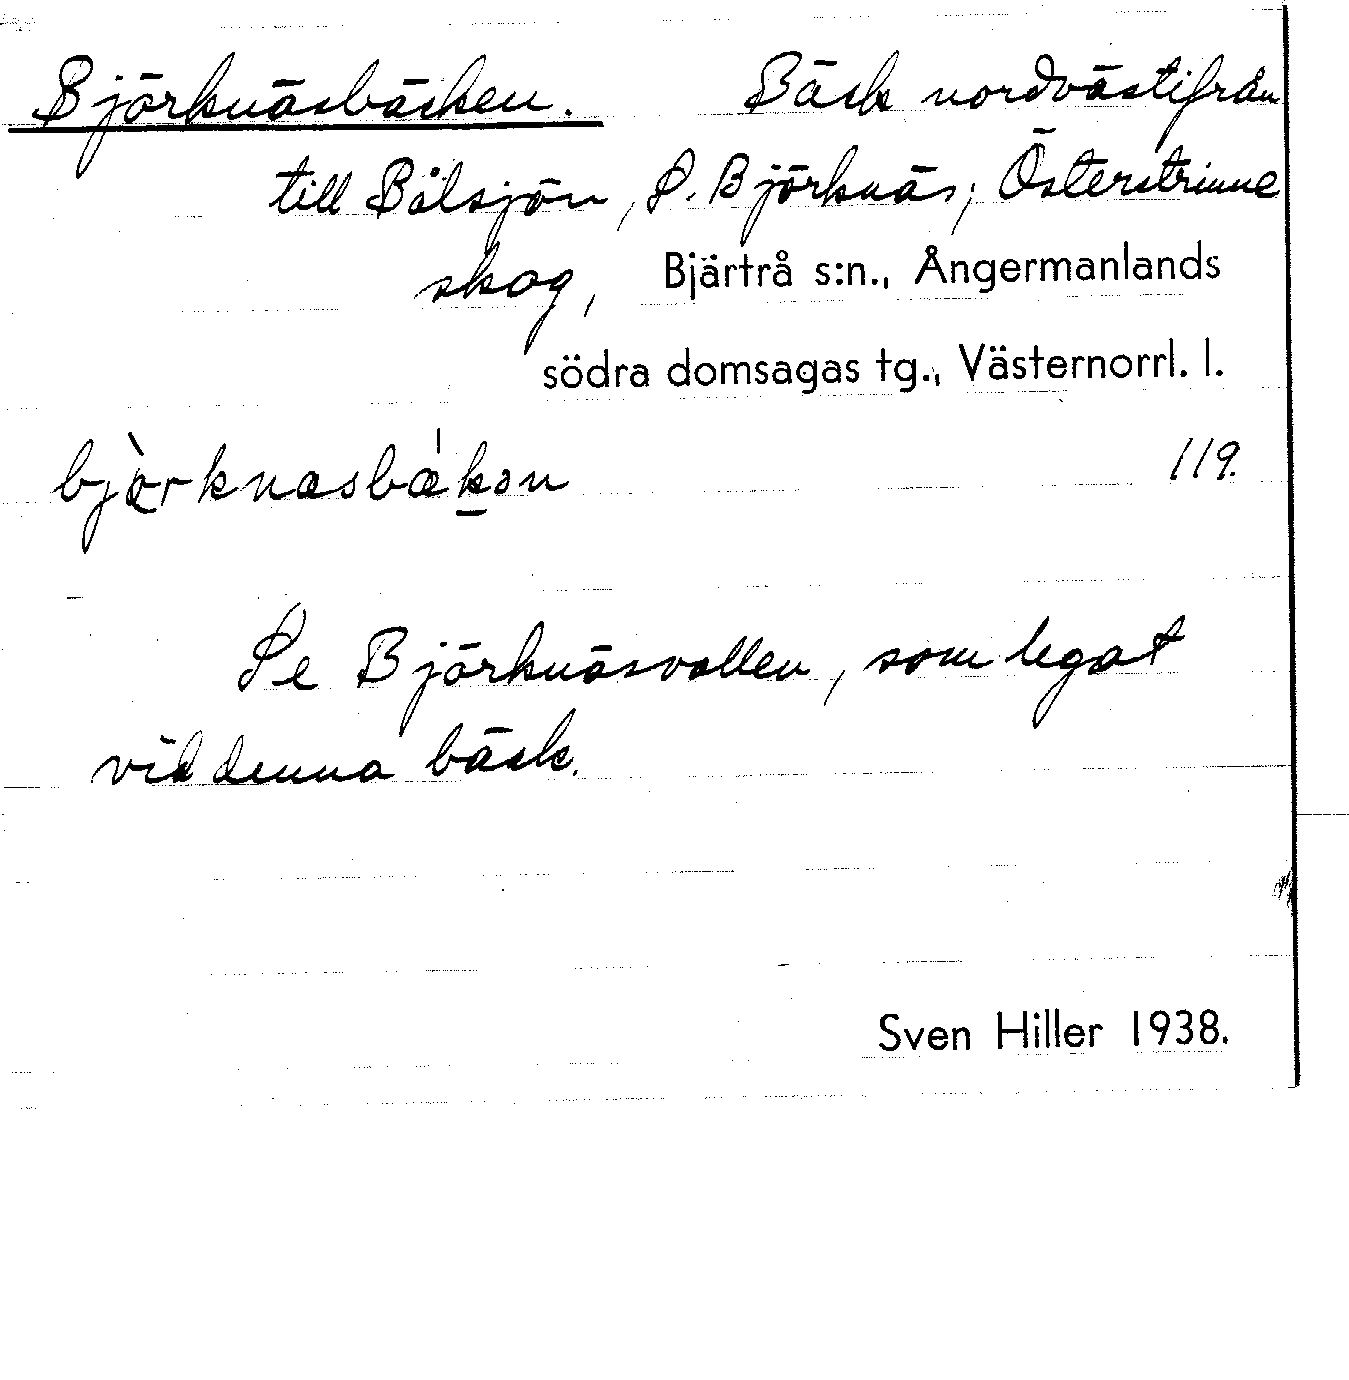 Björknäsbäcken. Bäck nordvästifrån
till Bålsjön, S. Björknäs; Österstrinne
skog, Bjärtrå s:n., Ångermanlands
södra domsagas tg., Västernorrl. l.
119.
Se Björknäsvallen, som legat
vid denna bäck.
Sven Hiller 1938.